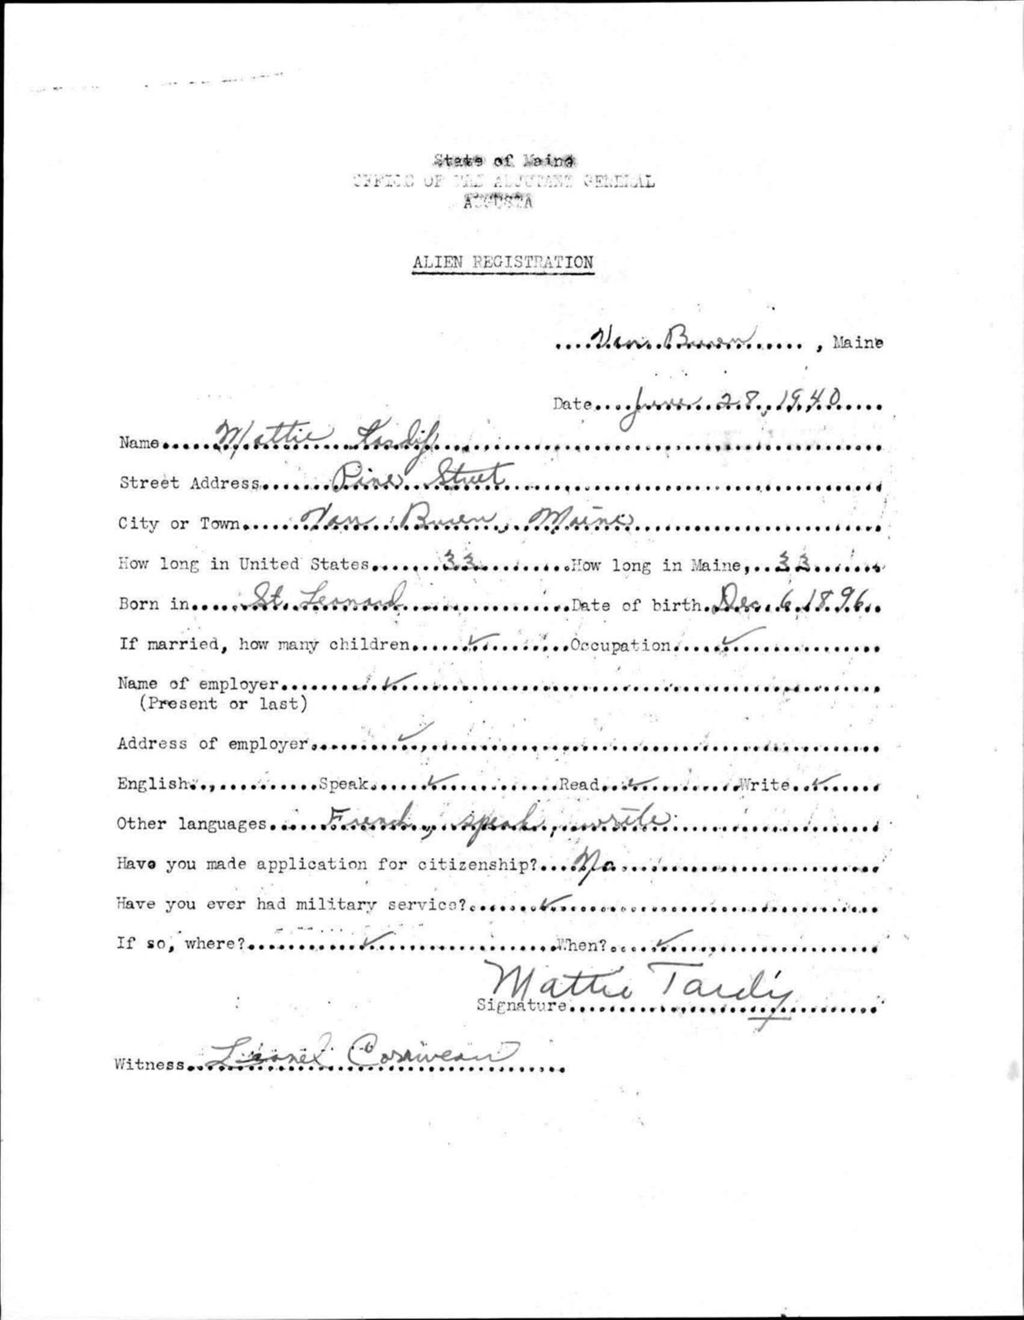 State of Maine
OFFICE OF THE ADJUTANT GENERAL
AUGUSTA
ALIEN REGISTRATION
Van Buren, Maine
Date June 28, 1940
Name Mattie Tardif
Street Address Pine Street
City or Town Van Buren, Maine
How long in United States 33 How long in Maine, 33
Born in St. Leonard Date of birth Dec. 6, 1896
If married, how many children ✓ Occupation ✓
Name of employer ✓
(Present or last)
Address of employer ✓
English Speak ✓ Read ✓ Write ✓
Other languages French, speak, write
Have you made application for citizenship? No
Have you ever had military service? ✓
If so, where? ✓ When? ✓
Mattie Tardiy
Signature
Witness Lionel Corriveau